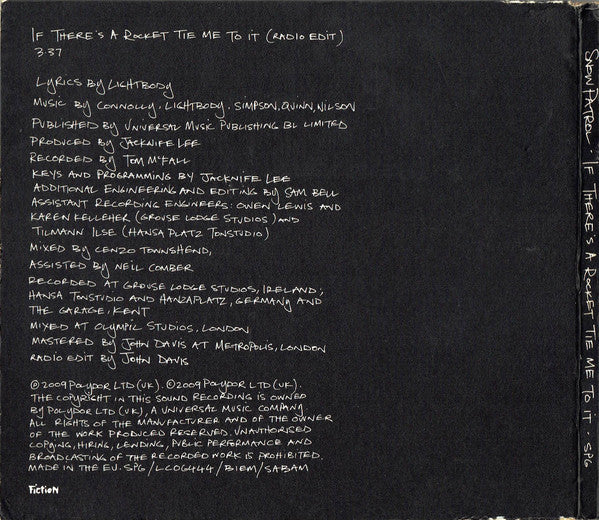 IF THERE'S A ROCKET TIE ME TO IT (RADIO EDIT)
3.37
LYRICS BY LIGHTBODY
MUSIC BY CONNOLLY. LIGHTBODY. SIMPSON, QUINN, NILSON
PUBLISHED BY UNIVERSAL MUSIC PUBLISHING BL LIMITED
PRODUCED BY JACKNIFE LEE
RECORDED BY TOM McFALL
KEYS AND PROGRAMMING BY JACKNIFE LEE
ADDITIONAL ENGINEERING AND EDITING BY SAM BELL
ASSISTANT RECORDING ENGINEERS: OWEN LEWIS AND
KAREN KELLEHER (GROUSE LODGE STUDIOS) AND
TILMANN ILSE (HANSA PLATZ TONSTUDIO)
MIXED BY CENZO TOWNSHEND,
ASSISTED BY NEIL COMBER
RECORDED AT GROUSE LODGE STUDIOS, IRELAND;
HANSA TONSTUDIO AND HANZAPLATZ, GERMANY AND
THE GARAGE, KENT
MIXED AT OLYMPIC STUDIOS, LONDON
MASTERED BY JOHN DAVIS AT METROPOLIS, LONDON
RADIO EDIT BY JOHN DAVIS
℗2009 POLYDOR LTD (UK). ©2009 POLYDOR LTD (UK).
THE COPYRIGHT IN THIS SOUND RECORDING IS OWNED
BY POLYDOR LTD (UK), A UNIVERSAL MUSIC COMPANY
ALL RIGHTS OF THE MANUFACTURER AND OF THE OWNER
OF THE WORK PRODUCED RESERVED. UNAUTHORISED
COPYING, HIRING, LENDING, PUBLIC PERFORMANCE AND
BROADCASTING OF THE RECORDED WORK IS PROHIBITED.
MADE IN THE EU. SPG/LC06444/BIEM/SABAM
FICTION
SNOW PATROL: IF THERE'S A ROCKET TIE ME TO IT SPG